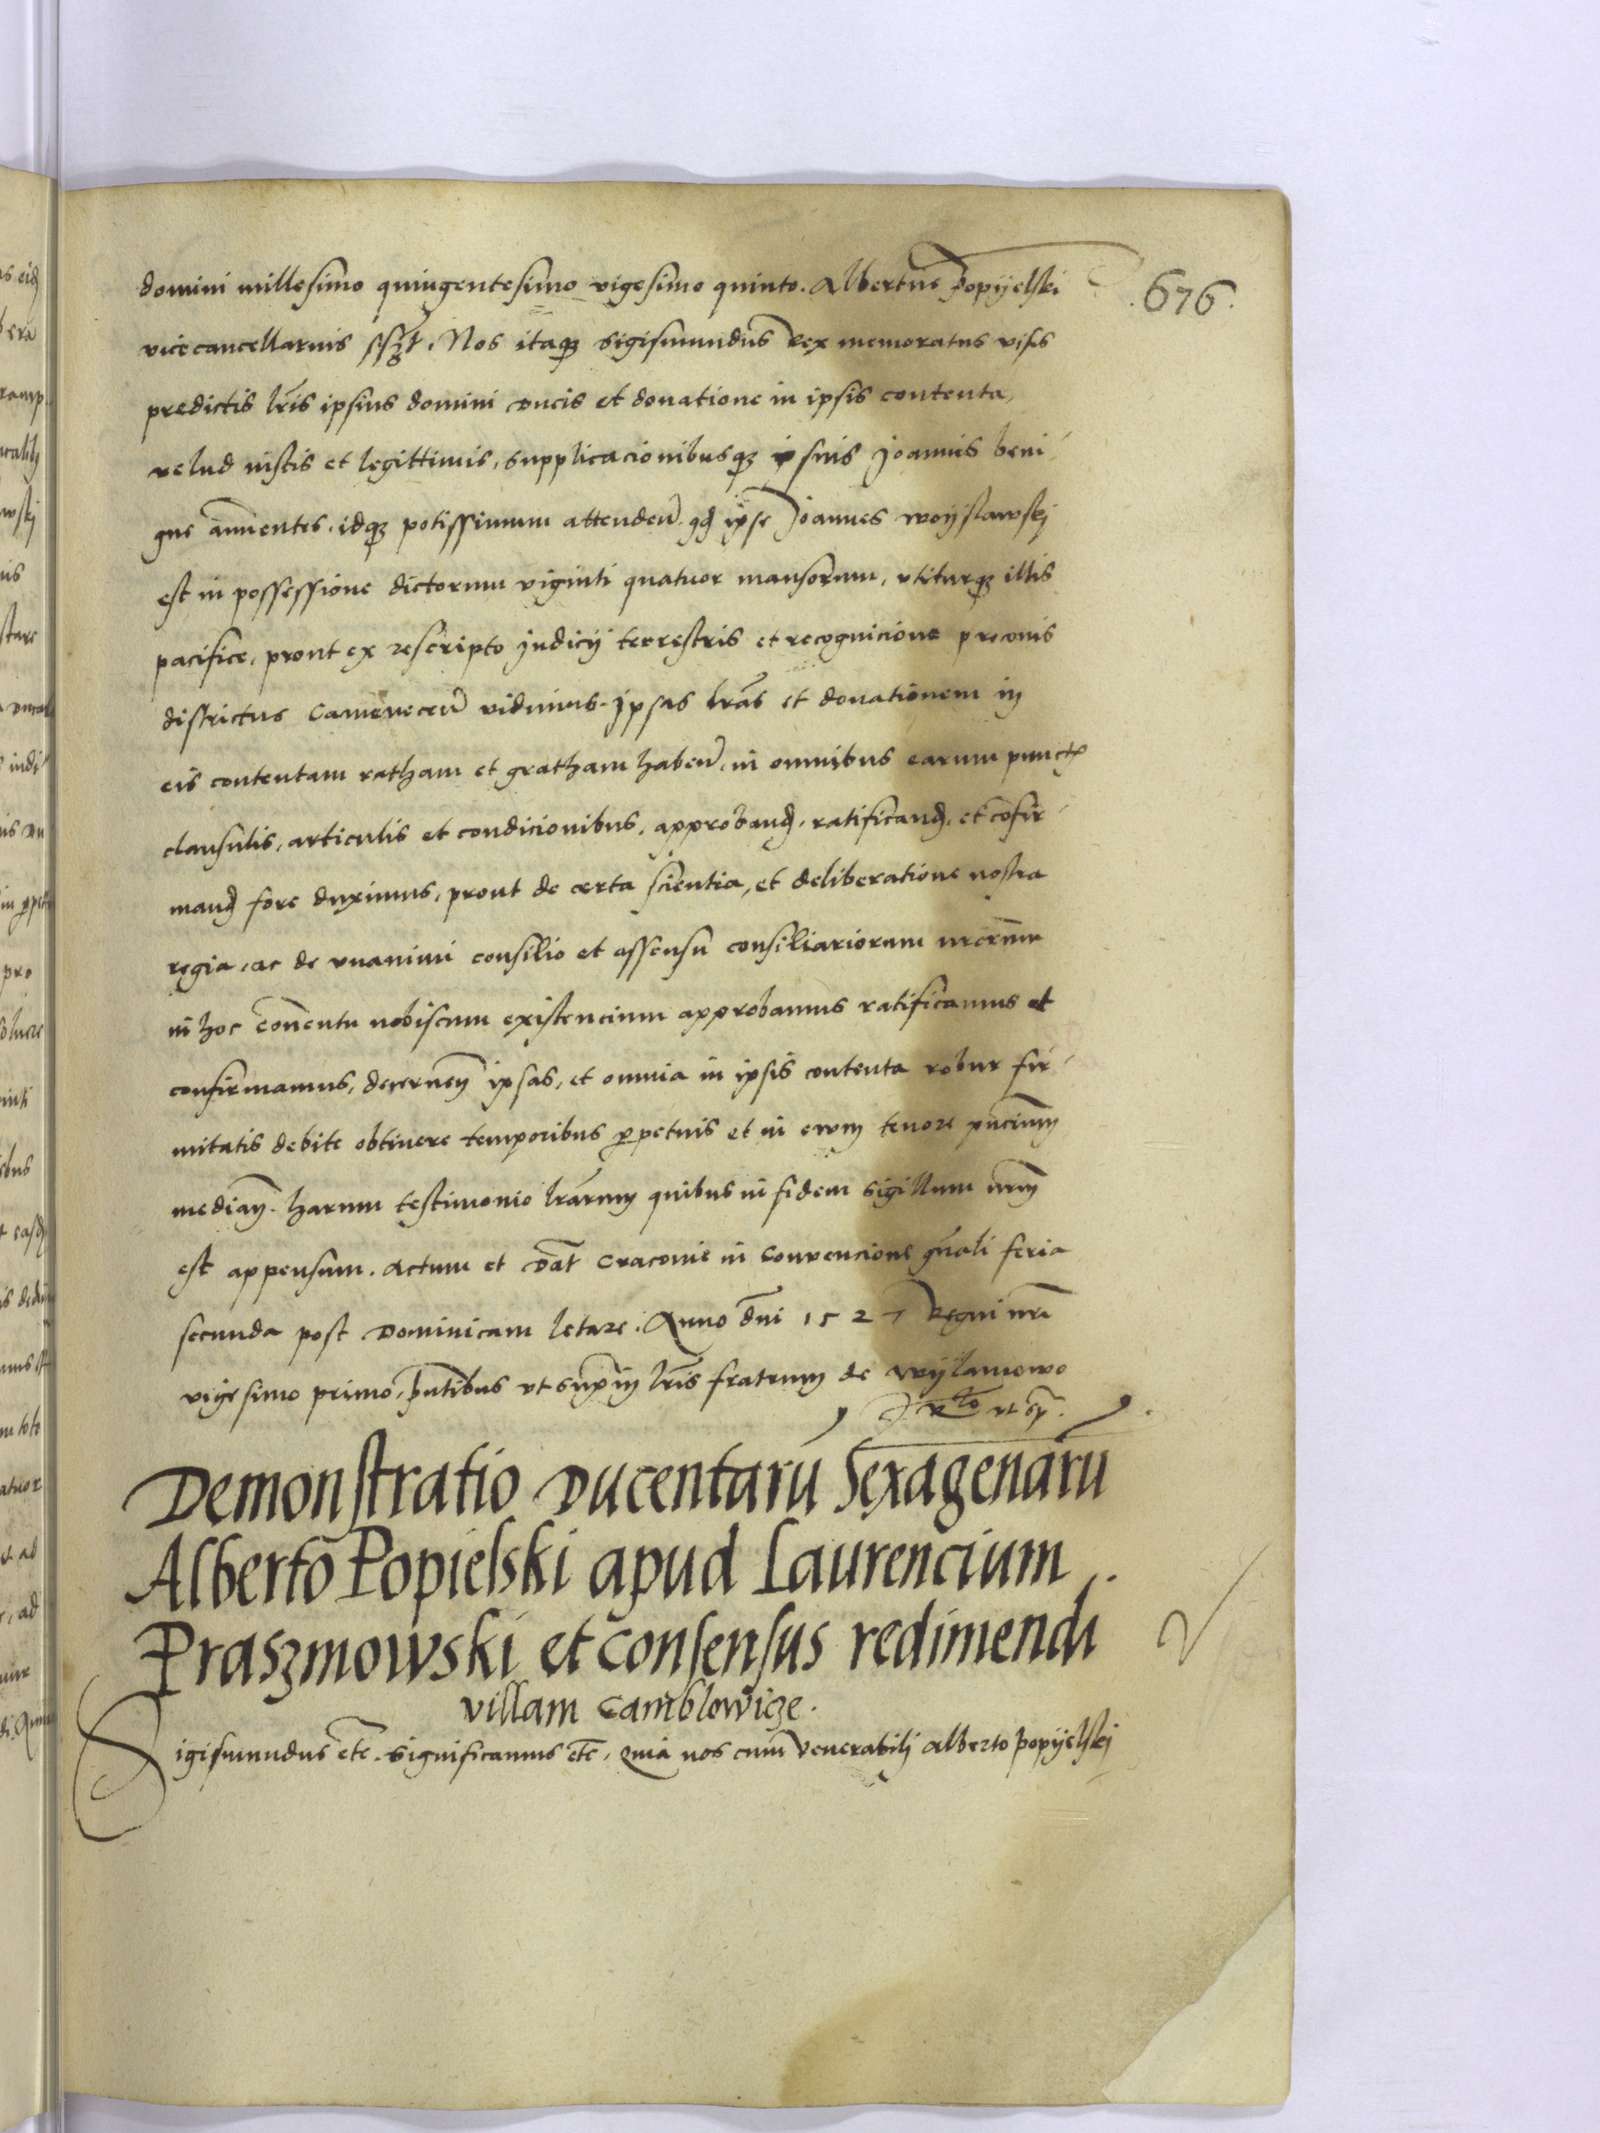 domini millesimo quingentesimo vigesimo quinto. Albertus Popyelski
.676.
vicecancellarius sszt. Nos itaq sigismundus Rex memoratus visis
predictis lris ipsius domini Ducis et donatione in ipsis contenta,
velud iustis et legittimis, supplicacionibusq ipsius Joannis beni
gne annuentes. idq potissimum attenden. qd ipse Joannes woyslawskj
est in possessione dictorum viginti quatuor mansorum, vtiturq illis
pacifice, prout ex rescripto Judicij terrestris et recognicione preconis
districtus Camenecen vidimus. Ipsas lras et donationem in
eis contentam ratham et gratham haben. in omnibus earum punct
clausulis, articulis et condicionibus, approband. ratificand. et cofir
mand fore duximus, prout de certa scientia, et deliberatione nostra
regia, ac de vnanimi consilio et assensu consiliariorum nrorum
in hoc conuentu nobiscum existencium approbamus ratificamus et
confirmamus, decernen ipsas, et omnia in ipsis contenta robur fir
mitatis debite obtinere temporibus perpetuis et in ewm tenore pncium
median. harum testimonio lrarum quibus in fidem sigillum nrm
est appensum. Actum et Dat Cracovie in Convencione gnali feria
secunda post Dominicam letare. Anno dni 1527 Regni nri
vigesimo primo, pntibus vt supra in lris fratrum de wylamowo
Rto vt sp.
Demonstratio Ducentaru Sexagenaru
Alberto Popielski apud Laurencium
Praszmowski et consensus redimendi
villam Camblowize.
Sigismundus etc. significamus etc. Quia nos cum Venerabilj Alberto Popyelskj